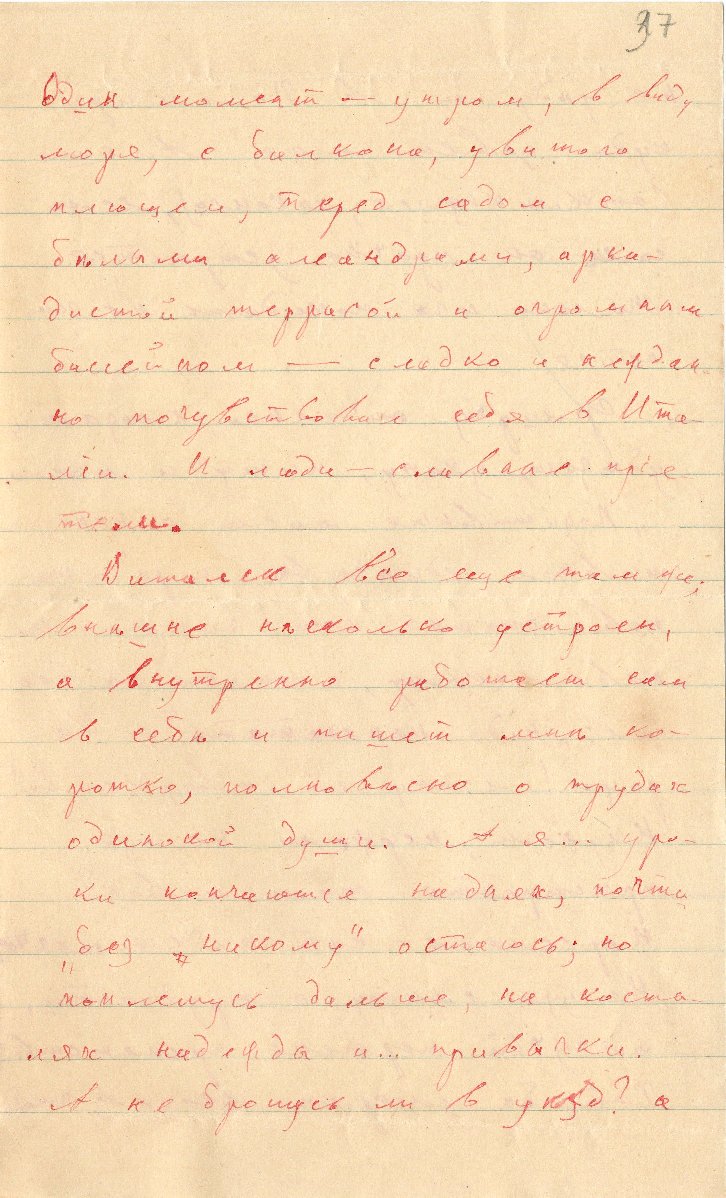 37
Один момент — утром, в виду
моря, с балкона, увитого
плющем, перед садом с
бѣлыми олеандрами, арка-
дистой террасой и огромным
бассейном — сладко и неждан-
но почувствовал себя в Ита-
ліи. И люди — славные прія-
тели.
Виталек все еще там же;
внѣшне нѣсколько устроен,
а внутренно работает сам
в себѣ и пишет мнѣ ко-
ротко, полновѣсно о трудах
одинокой души. А я... уро-
ки кончаются на днях, почти
"без "никому" остаюсь; но
поплетусь дальше, на косты-
лях надежды и... привычки.
А не брошусь ли в уѣзд? а